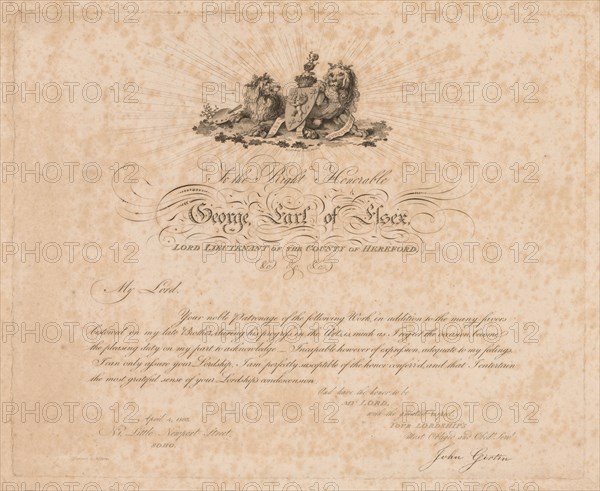 To the Right Honorable
George, Earl of Essex,
LORD LIEUTENANT OF THE COUNTY OF HEREFORD,
&c &c &c
My Lord.
Your noble Patronage of the following Work, in addition to the many favors
bestowed on my late Brother, during his progress in the Arts, is, much as I regret the occasion, become
the pleasing duty on my part to acknowledge. Incapable however of expression, adequate to my feelings,
I can only assure your Lordship, I am perfectly susceptible of the honor conferr'd, and that I entertain
the most grateful sense of your Lordship's condescension.
And have the honor to be
MY LORD,
with the greatest respect
YOUR LORDSHIP'S
Most Oblig'd and Obedt. Servt.
John Girtin
April
Little Newport Street,
SOHO.
PHOTO12